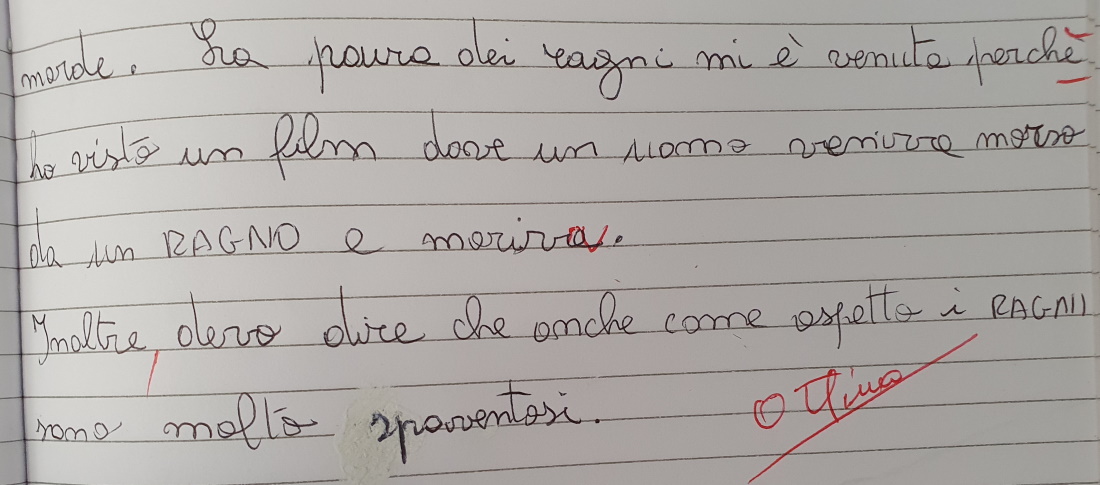 morde. La paura dei ragni mi è venuta perchè
ho visto un film dove un uomo veniva morso
da un RAGNO e moriva.
Inoltre, devo dire che anche come aspetto i RAGNI
sono molto spaventosi.
Ottimo